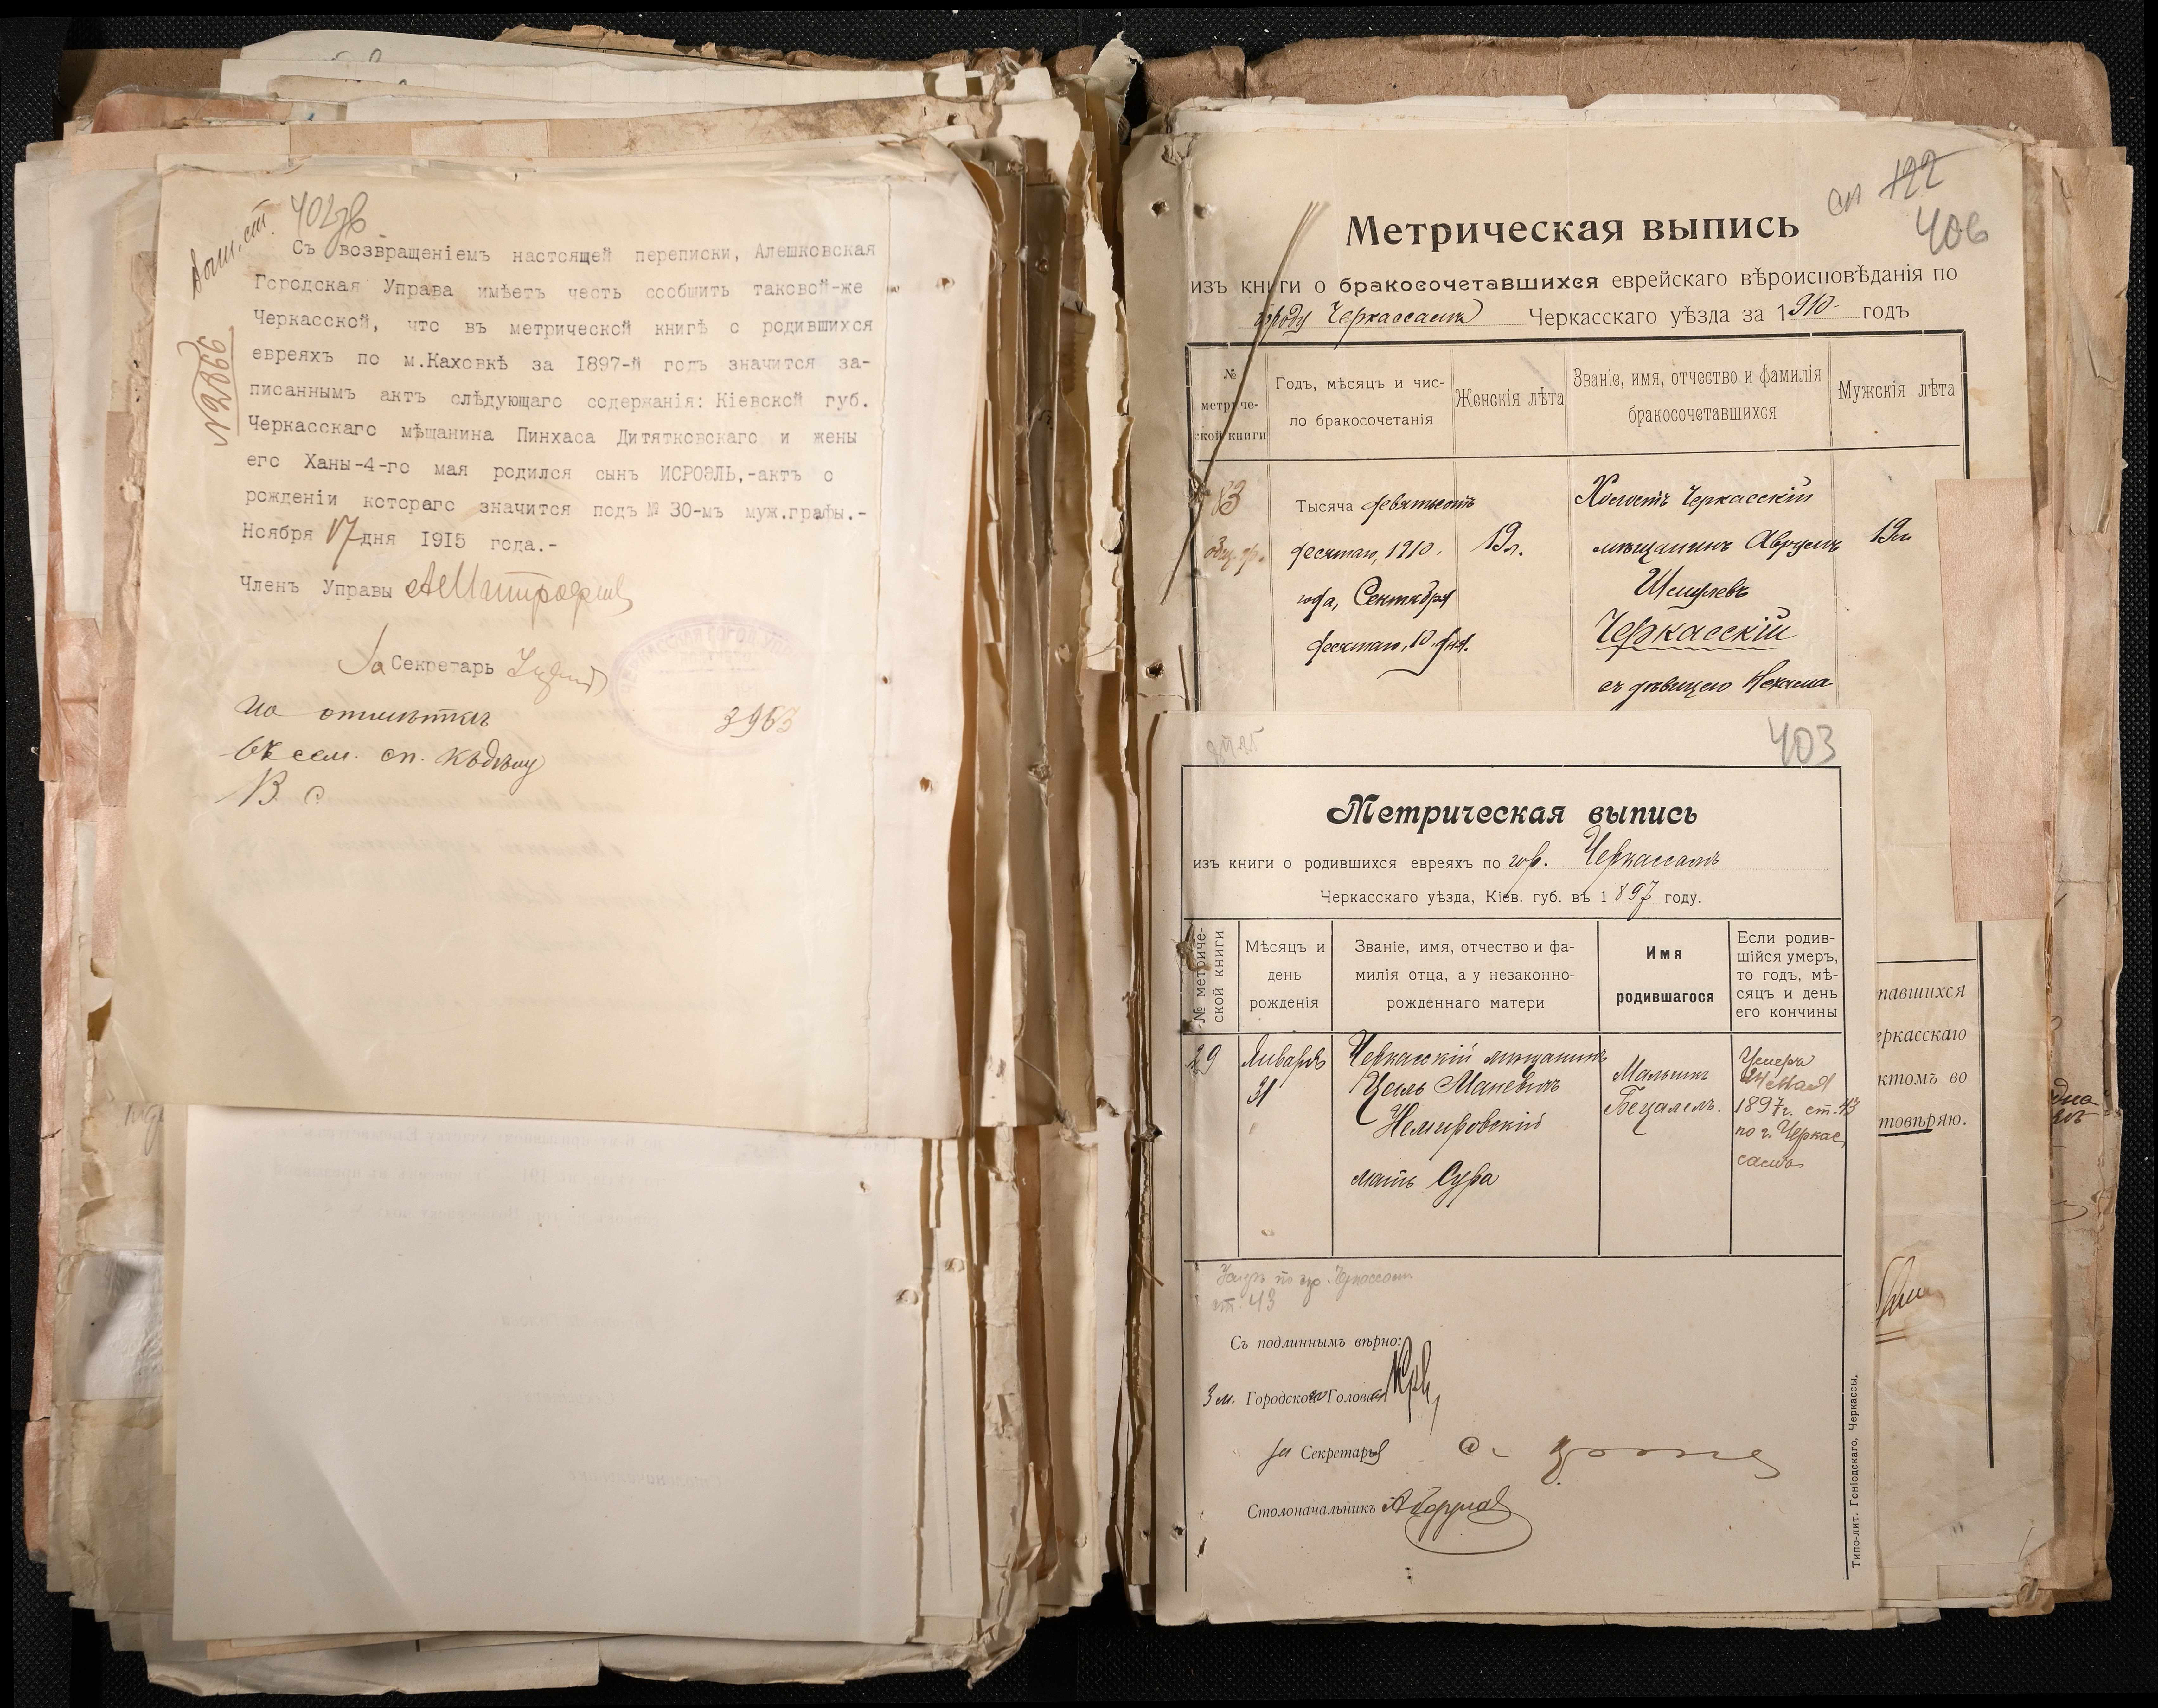 402 зв
№ 2866
Съ возвращеніемъ настоящей переписки, Алешковская
Городская Управа имѣетъ честь сообщить таковой-же
Черкасской, что въ метрической книгѣ о родившихся
евреяхъ по м.Каховкѣ за 1897-й годъ значится за-
писаннымъ актъ слѣдующаго содержанія: Кіевской губ.
Черкасскаго мѣщанина Пинхаса Дитятковскаго и жены
его Ханы-4-го мая родился сынъ ИСРОЭЛЬ,-актъ о
рожденіи котораго значится подъ № 30-мъ муж.графы.-
Ноября 17 дня 1915 года.-
Членъ Управы
За Секретарь
3963
въ сем. сп. къ дѣлу
406
Метрическая выпись
изъ книги о бракосочетавшихся еврейскаго вѣроисповѣданія по
городу Черкассамъ Черкасскаго уѣзда за 1910 годъ
№ метриче-ской книги
Годъ, мѣсяцъ и чис-ло бракосочетанія
Женскія лѣта
Званіе, имя, отчество и фамилія бракосочетавшихся
Мужскія лѣта
Тысяча девятьсотъ
десятаго, 1910.
года, Сентября
десятаго, 10 дня.
19 л.
Холостъ Черкасскій
мѣщанинъ Аврумъ
Шмулевъ
Черкасскій
съ дѣвицею Нехама
19 л.
403
Метрическая выпись
изъ книги о родившихся евреяхъ по гор. Черкассамъ
Черкасскаго уѣзда, Кіев. губ. въ 1897 году.
№ метриче-
ской книги
Мѣсяцъ и
день
рожденія
Званіе, имя, отчество и фа-
милія отца, а у незаконно-
рожденнаго матери
Имя
родившагося
Если родив-
шійся умеръ,
то годъ, мѣ-
сяцъ и день
его кончины
29
Января
31
Черкасскій мѣщанинъ
Цель Маневичъ
Немировскій
мать Сура
Мальчикъ
Бецалель.
Умеръ
24 мая
1897 г. ст. 43
по г. Черкас
самъ
ст. 43
Съ подлиннымъ вѣрно:
Зм. Городского Головы
За Секретаря
Столоначальникъ
Типо-лит. Гоніодскаго, Черкассы.
павшихся
еркасскаго
ктомъ во
товѣряю.